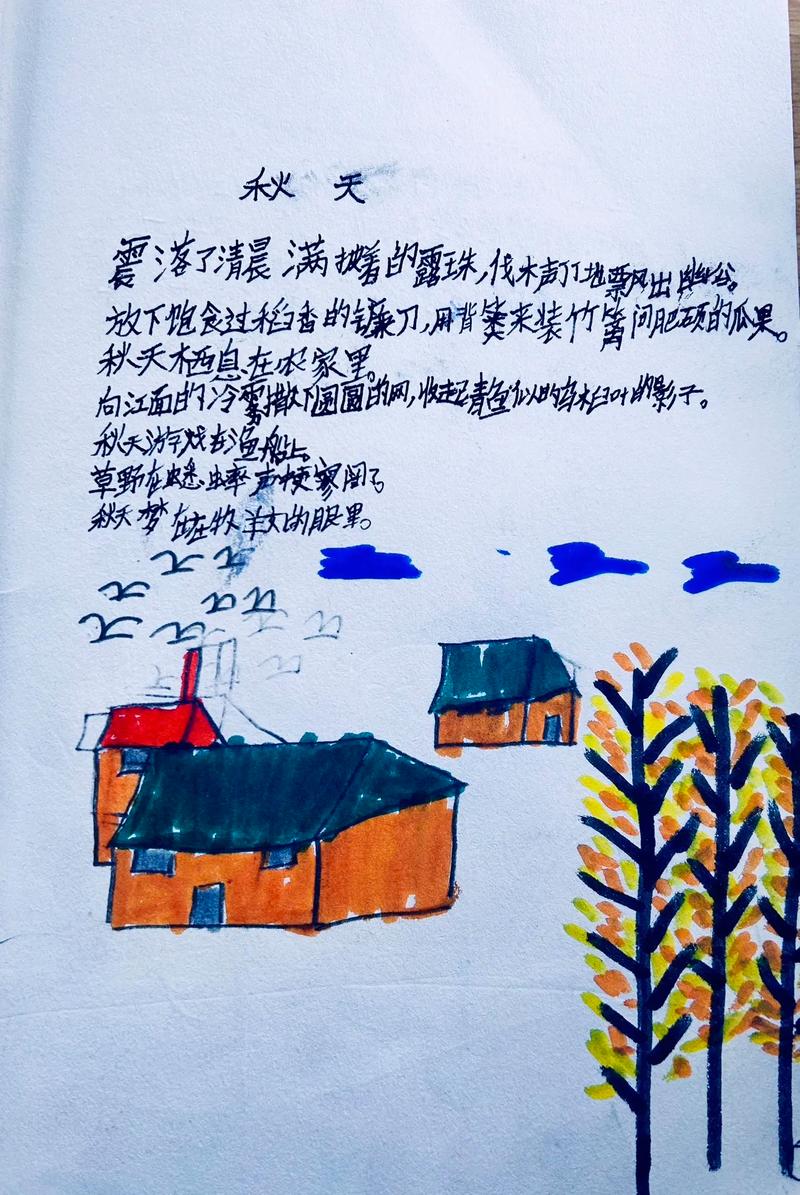 秋 天
震落了清晨满披着的露珠,伐木声丁丁地飘出幽谷。
放下饱食过稻香的镰刀,用背篓来装竹篱间肥硕的瓜果。
秋天栖息在农家里。
向江面的冷雾撒下圆圆的网,收起青鱼似的乌桕叶的影子。
秋天游戏在渔船上。
草野在蟋蟀声中更寥阔了
秋天梦在在牧羊女的眼里。